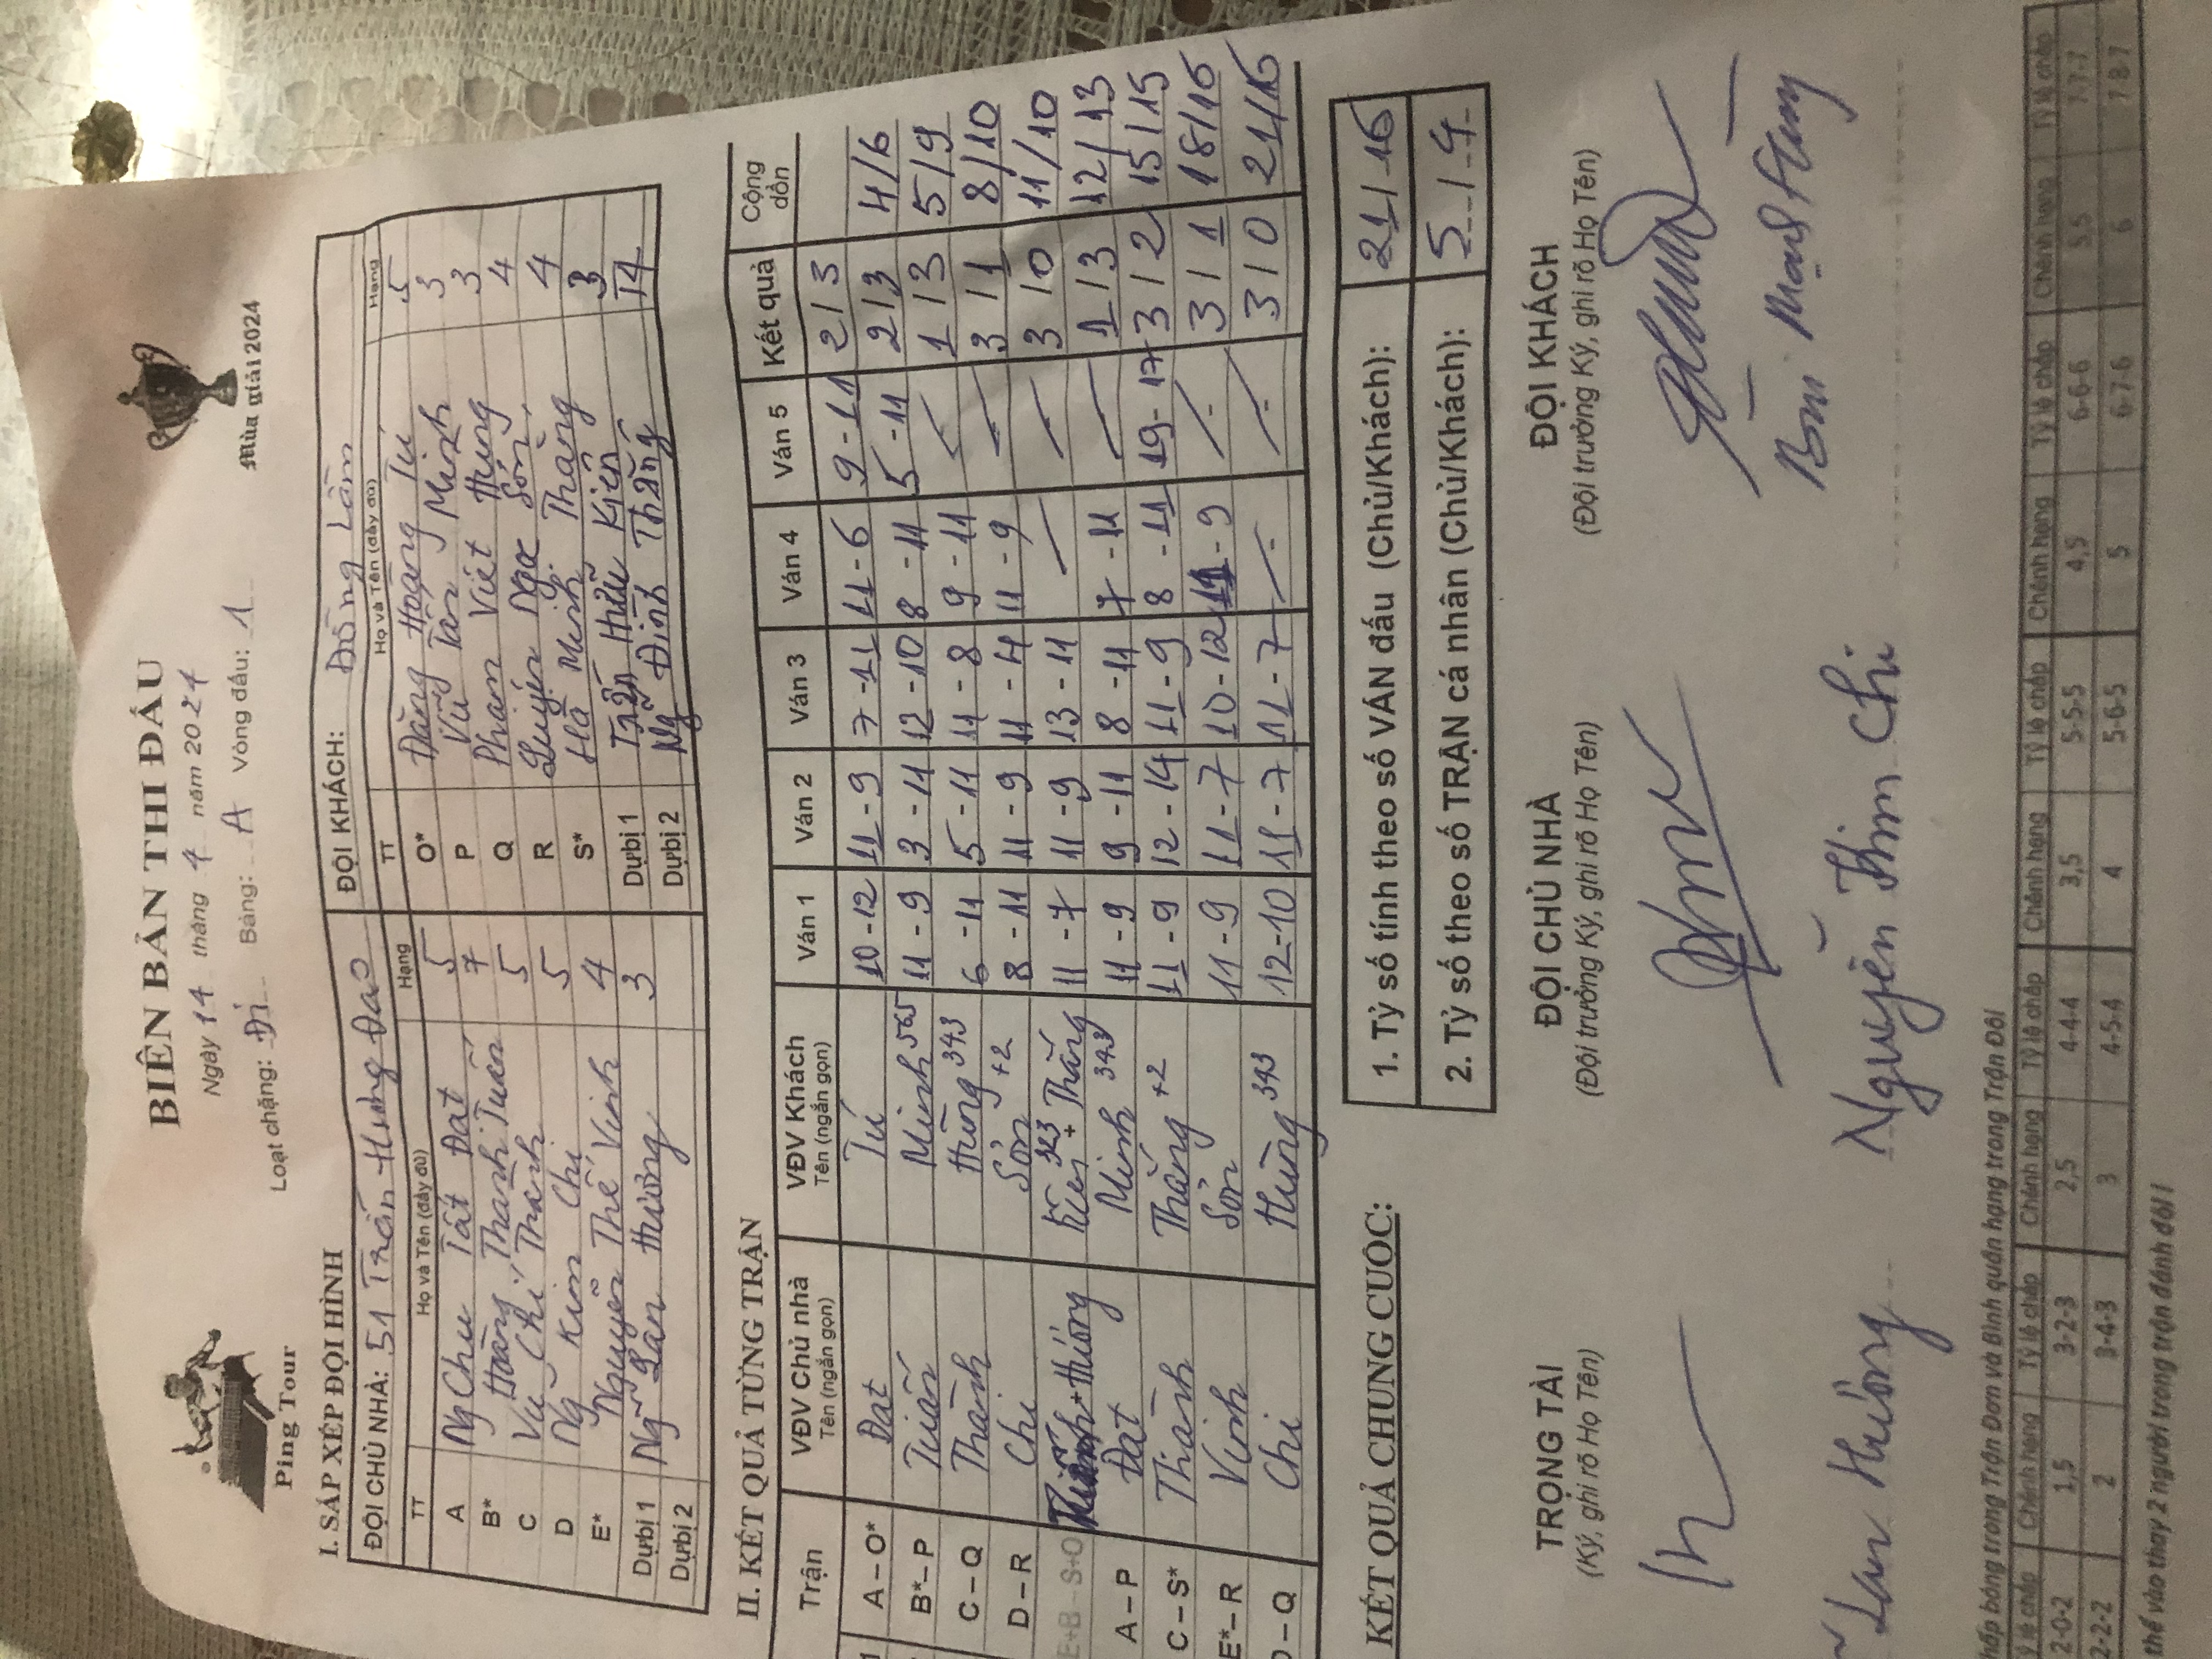 Ping Tour
BIÊN BẢN THI ĐẤU
Ngày 14 tháng 4 năm 2024
Loạt chặng: Đi Bảng: A Vòng đấu: 1
Mùa giải 2024
I. SẮP XẾP ĐỘI HÌNH
ĐỘI CHỦ NHÀ: 51 Trần Hưng Đạo ĐỘI KHÁCH: Đồng Lầm
TT Họ và Tên (đầy đủ) Hạng TT Họ và Tên (đầy đủ) Hạng
A Ng Chu Tất Đạt 5 O* Đặng Hoàng Tú 5
B* Hoàng Thanh Tuấn 7 P Vũ Tân Minh 3
C Vũ Chí Thành 5 Q Phạm Việt Hùng 3
D Ng Kim Chi 5 R Ngọc Sơn 4
E* Nguyễn Thế Vinh 4 S* Hà Minh Thắng 4
Dự bị 1 Ng Lan Hương 3 Dự bị 1 Trần Hữu Kiên 3
Dự bị 2 Dự bị 2 Ng Đình Thắng
II. KẾT QUẢ TỪNG TRẬN
Trận VĐV Chủ nhà VĐV Khách Ván 1 Ván 2 Ván 3 Ván 4 Ván 5 Kết quả Cộng dồn
Tên (ngắn gọn) Tên (ngắn gọn)
A – O* Đạt Tú 10 - 12 11 - 9 7 - 11 11 - 6 9 - 11 2 / 3
B* – P Tuấn Minh 565 11 - 9 3 - 11 12 - 10 8 - 11 5 - 11 2 / 3 4/6
C – Q Thành Hùng 343 6 - 11 5 - 11 11 - 8 9 - 11 1 / 3 5/9
D – R Chi Sơn +2 8 - 11 11 - 9 11 - 4 11 - 9 3 / 1 8/10
E+B – S+O + Hương Kiên 323 + Thắng 11 - 7 11 - 9 13 - 11 3 / 0 11/10
A – P Đạt Minh 343 11 - 9 9 - 11 8 - 11 7 - 11 1 / 3 12/13
C – S* Thành Thắng +2 11 - 9 12 - 14 11 - 9 8 - 11 19 - 17 3 / 2 15/15
E* – R Vinh Sơn 11 - 9 11 - 7 10 - 12 11 - 9 - 3 / 1 18/16
D – Q Chi Hùng 343 12 - 10 11 - 7 11 - 7 - - 3 / 0 21/16
KẾT QUẢ CHUNG CUỘC:
1. Tỷ số tính theo số VÁN đấu (Chủ/Khách): 21 / 16
2. Tỷ số theo số TRẬN cá nhân (Chủ/Khách): 5 / 4
TRỌNG TÀI ĐỘI CHỦ NHÀ ĐỘI KHÁCH
(Ký, ghi rõ Họ Tên) (Đội trưởng Ký, ghi rõ Họ Tên) (Đội trưởng Ký, ghi rõ Họ Tên)
Lan Hương Nguyễn Kim Chi Bùi Mạnh Hùng
chấp bóng trong Trận Đơn và Bình quân hạng trong Trận Đôi
Tỷ lệ chấp Chênh hạng Tỷ lệ chấp Chênh hạng Tỷ lệ chấp Chênh hạng Tỷ lệ chấp Chênh hạng Tỷ lệ chấp Chênh hạng Tỷ lệ chấp Chênh hạng Tỷ lệ chấp
2-0-2 1,5 3-2-3 2,5 4-4-4 3,5 5-5-5 4,5 6-6-6 5,5 7-7-7
2-2-2 2 3-4-3 3 4-5-4 4 5-6-5 5 6-7-6 6 7-8-7
thế vào thay 2 người trong trận đánh đôi !